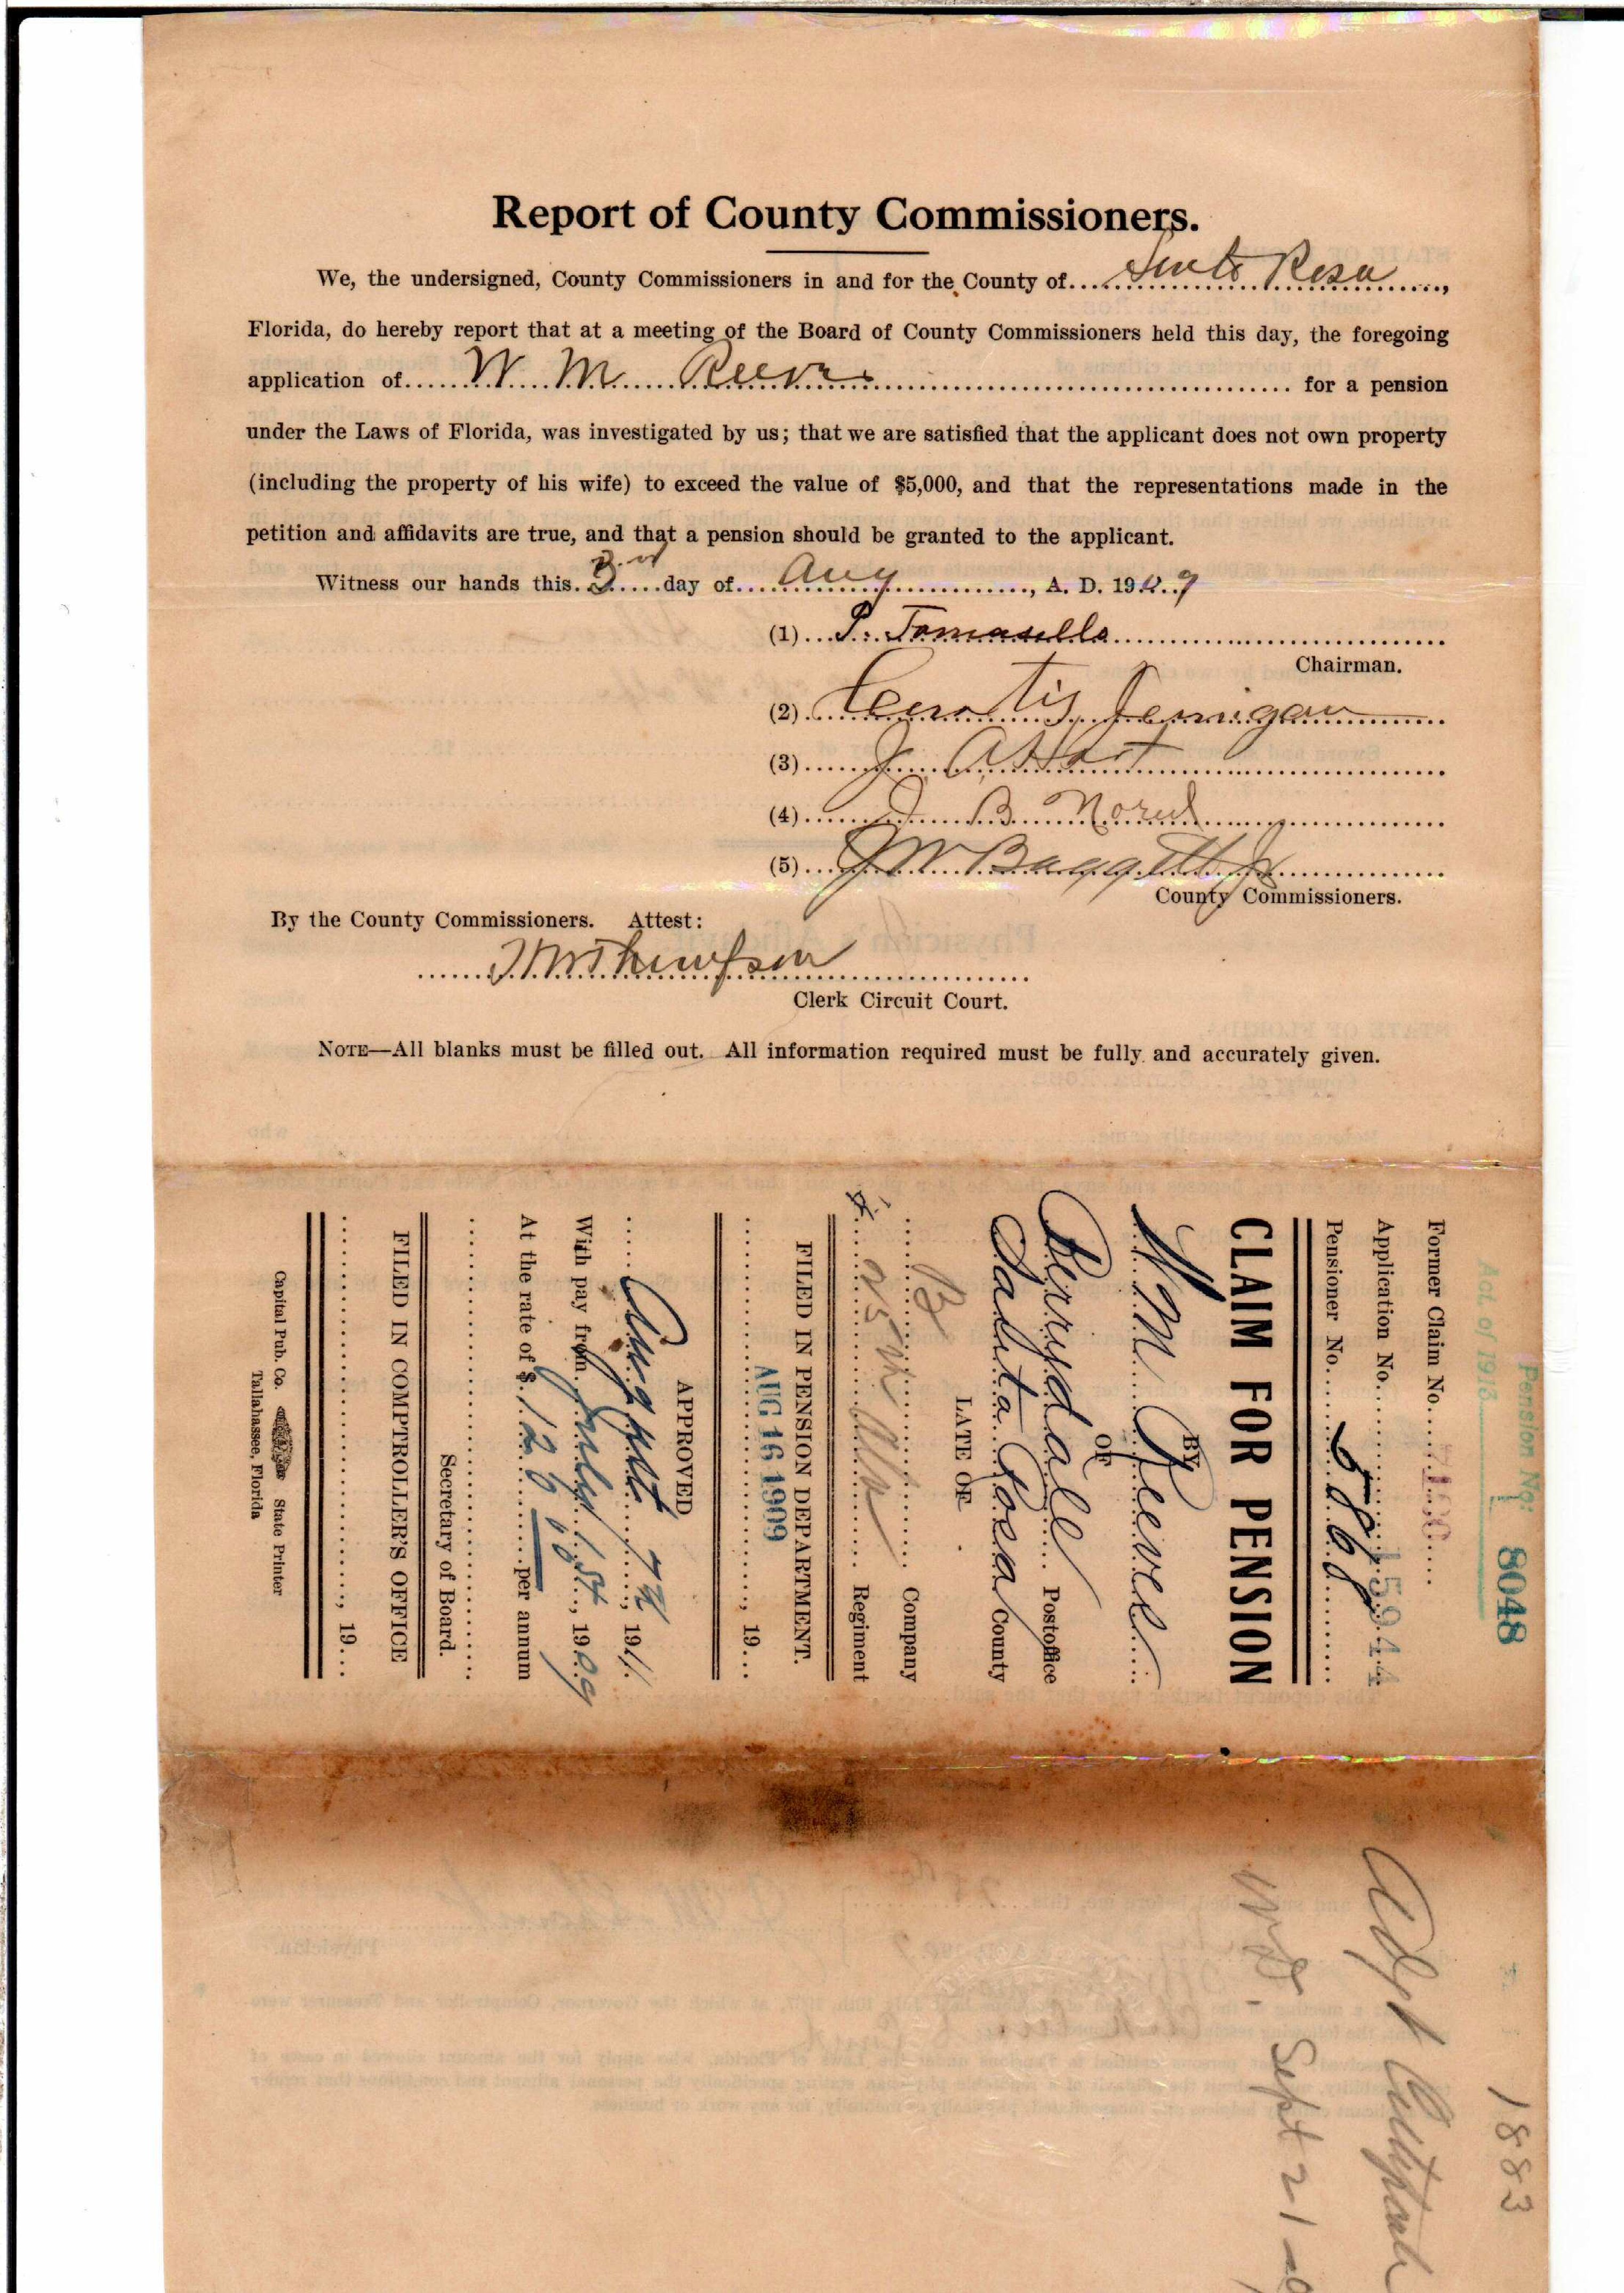 Report of County Commissioners.
We, the undersigned, County Commissioners in and for the County of....Santa Rosa....,
Florida, do hereby report that at a meeting of the Board of County Commissioners held this day, the foregoing
application of......W. M. Reeves...... for a pension
under the Laws of Florida, was investigated by us; that we are satisfied that the applicant does not own property
(including the property of his wife) to exceed the value of $5,000, and that the representations made in the
petition and affidavits are true, and that a pension should be granted to the applicant.
Witness our hands this..3rd....day of....Aug...., A. D. 1909
(1)...P. Tomasello
Chairman.
(2)...Curtis Jernigan
(3)...J. A. Hart
(4)... B.
(5)...J W Baggett Jr
County Commissioners.
By the County Commissioners. Attest:
Thompson
Clerk Circuit Court.
NOTE—All blanks must be filled out. All information required must be fully and accurately given.
Pension No. 8048
Act. of 1913
Former Claim No.
Application No. 15944
Pensioner No. 5868
CLAIM FOR PENSION
BY
W. M. Reeves
OF
Berrydale Postoffice
Santa Rosa County
LATE OF
B Company
25th Ala Regiment
FILED IN PENSION DEPARTMENT.
AUG 16 1909, 19....
APPROVED
August 7th, 19
With pay from July 1st, 1909
At the rate of $ 120 00 per annum
Secretary of Board.
FILED IN COMPTROLLER'S OFFICE
, 19...
Capital Pub. Co. State Printer
Tallahassee, Florida
1883
Sept 21